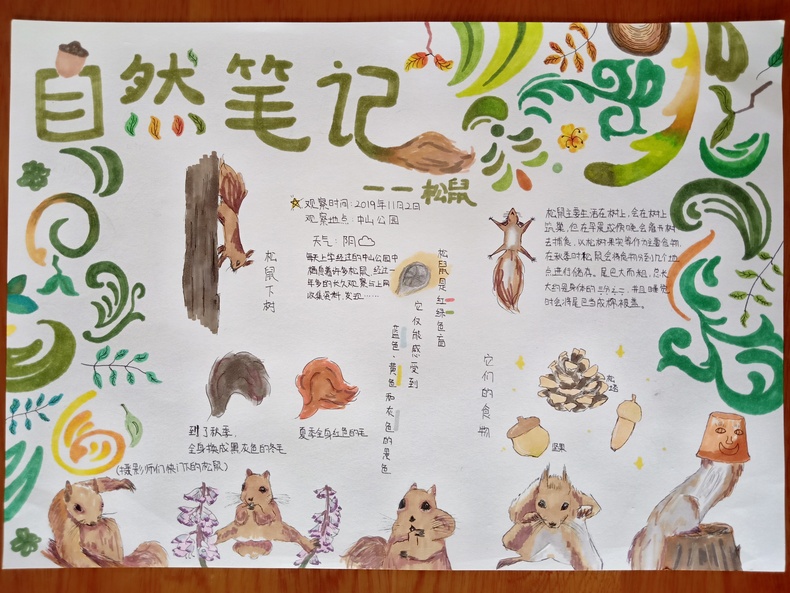 自然笔记
——松鼠
观察时间:2019年11月2日
观察地点:中山公园
天气:阴
每天上学经过的中山公园中
栖息着许多松鼠,经过一
年多的长久观察与上网
收集资料,发现……
松鼠下树
松鼠是红绿色盲
它仅能感受到
蓝色、黄色和灰色的景色
松鼠主要生活在树上,会在树上
筑巢,但在早晨或傍晚会离开树
去捕食,以松树果实等作为主要食物,
在秋季时松鼠会将食物分到几个地
点进行储存。尾巴大而粗,总长
大约是身体的三分之二,并且睡觉
时会将尾巴当成棉被盖。
到了秋季,
全身换成黑灰色的冬毛
夏季全身红色的毛
它们的食物
松塔
坚果
(摄影师们快门下的松鼠)